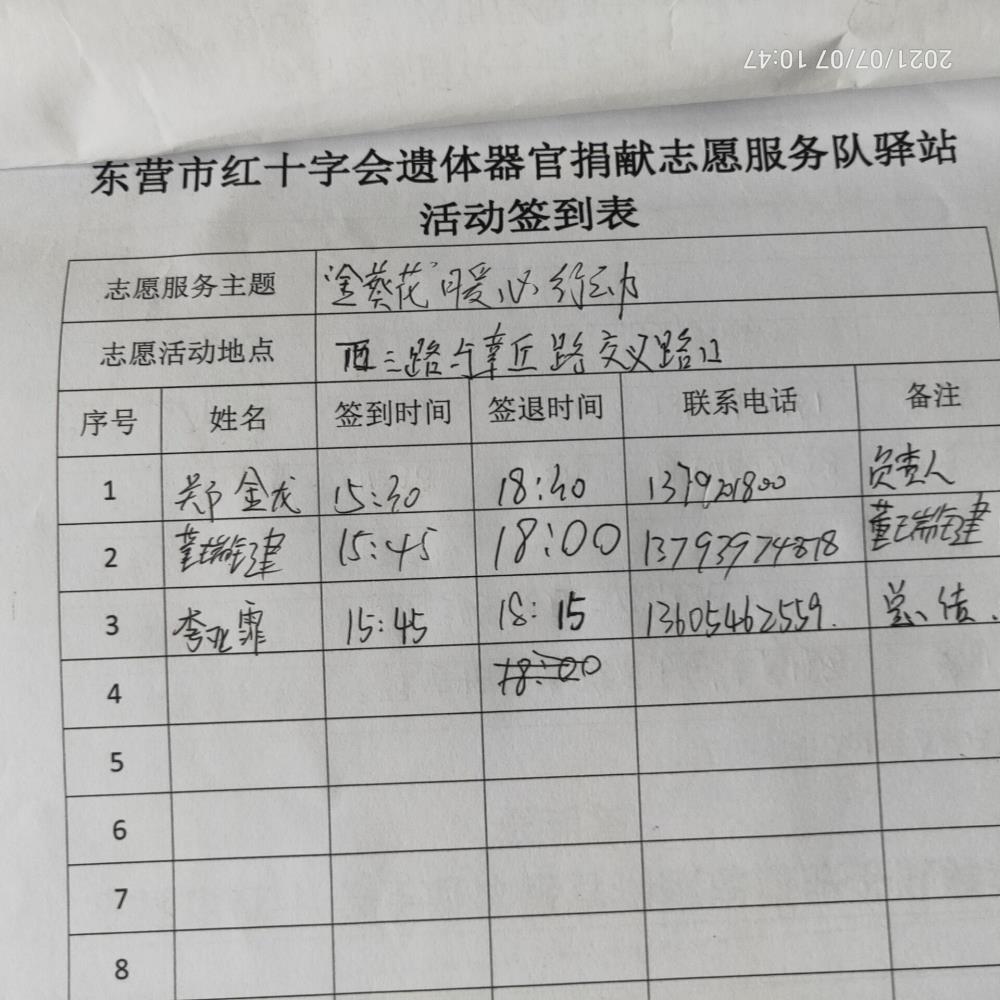 2021/07/07 10:47
东营市红十字会遗体器官捐献志愿服务队驿站
活动签到表
志愿服务主题 "金葵花"暖心行动
志愿活动地点 西二路与章丘路交叉路口
序号 姓名 签到时间 签退时间 联系电话 备注
1 郑金龙 15:30 18:30 负责人
2 董瑞建 15:45 18:00 13793974878 董瑞建
3 李亚霏 15:45 18:15 13605462559. 总结.
4 18:00
5
6
7
8